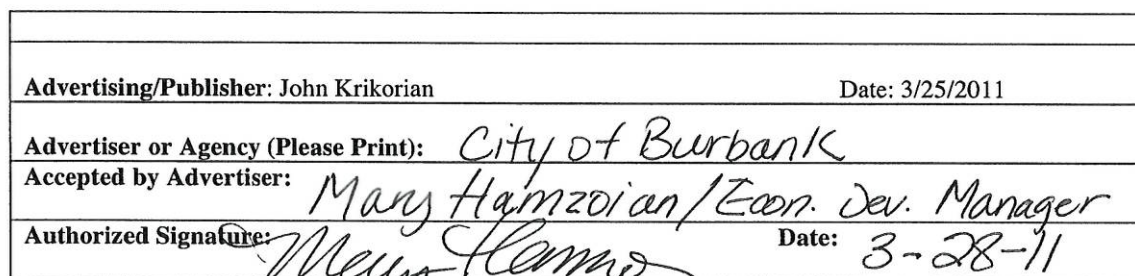 Advertising/Publisher: John Krikorian Date: 3/25/2011
Advertiser or Agency (Please Print): City of Burbank
Accepted by Advertiser: Mary Hamzoian/Econ. Dev. Manager
Authorized Signature: Date: 3-28-11